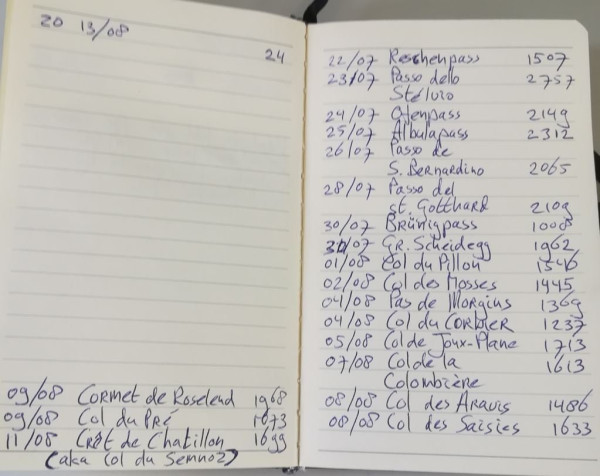 20 13/08
24
09/08 Cormet de Roselend 1968
09/08 Col du Pré 1673
11/08 Crêt de Chatillon 1699
(aka Col du Semnoz)
22/07 Reschenpass 1507
23/07 Passo dello 2757
Stélvio
24/07 Ofenpass 2149
25/07 Albulapass 2312
26/07 Passo de
S. Bernardino 2065
28/07 Passo del
St. Gotthard 2109
30/07 Brünigpass 1008
31/07 Gr. Scheidegg 1962
01/08 Col du Pillon 1546
02/08 Col des Mosses 1445
04/08 Pas de Morgins 1369
04/08 Col du Corbier 1237
05/08 Col de Joux-Plane 1713
07/08 Col de la 1613
Colombière
08/08 Col des Aravis 1486
08/08 Col des Saisies 1633